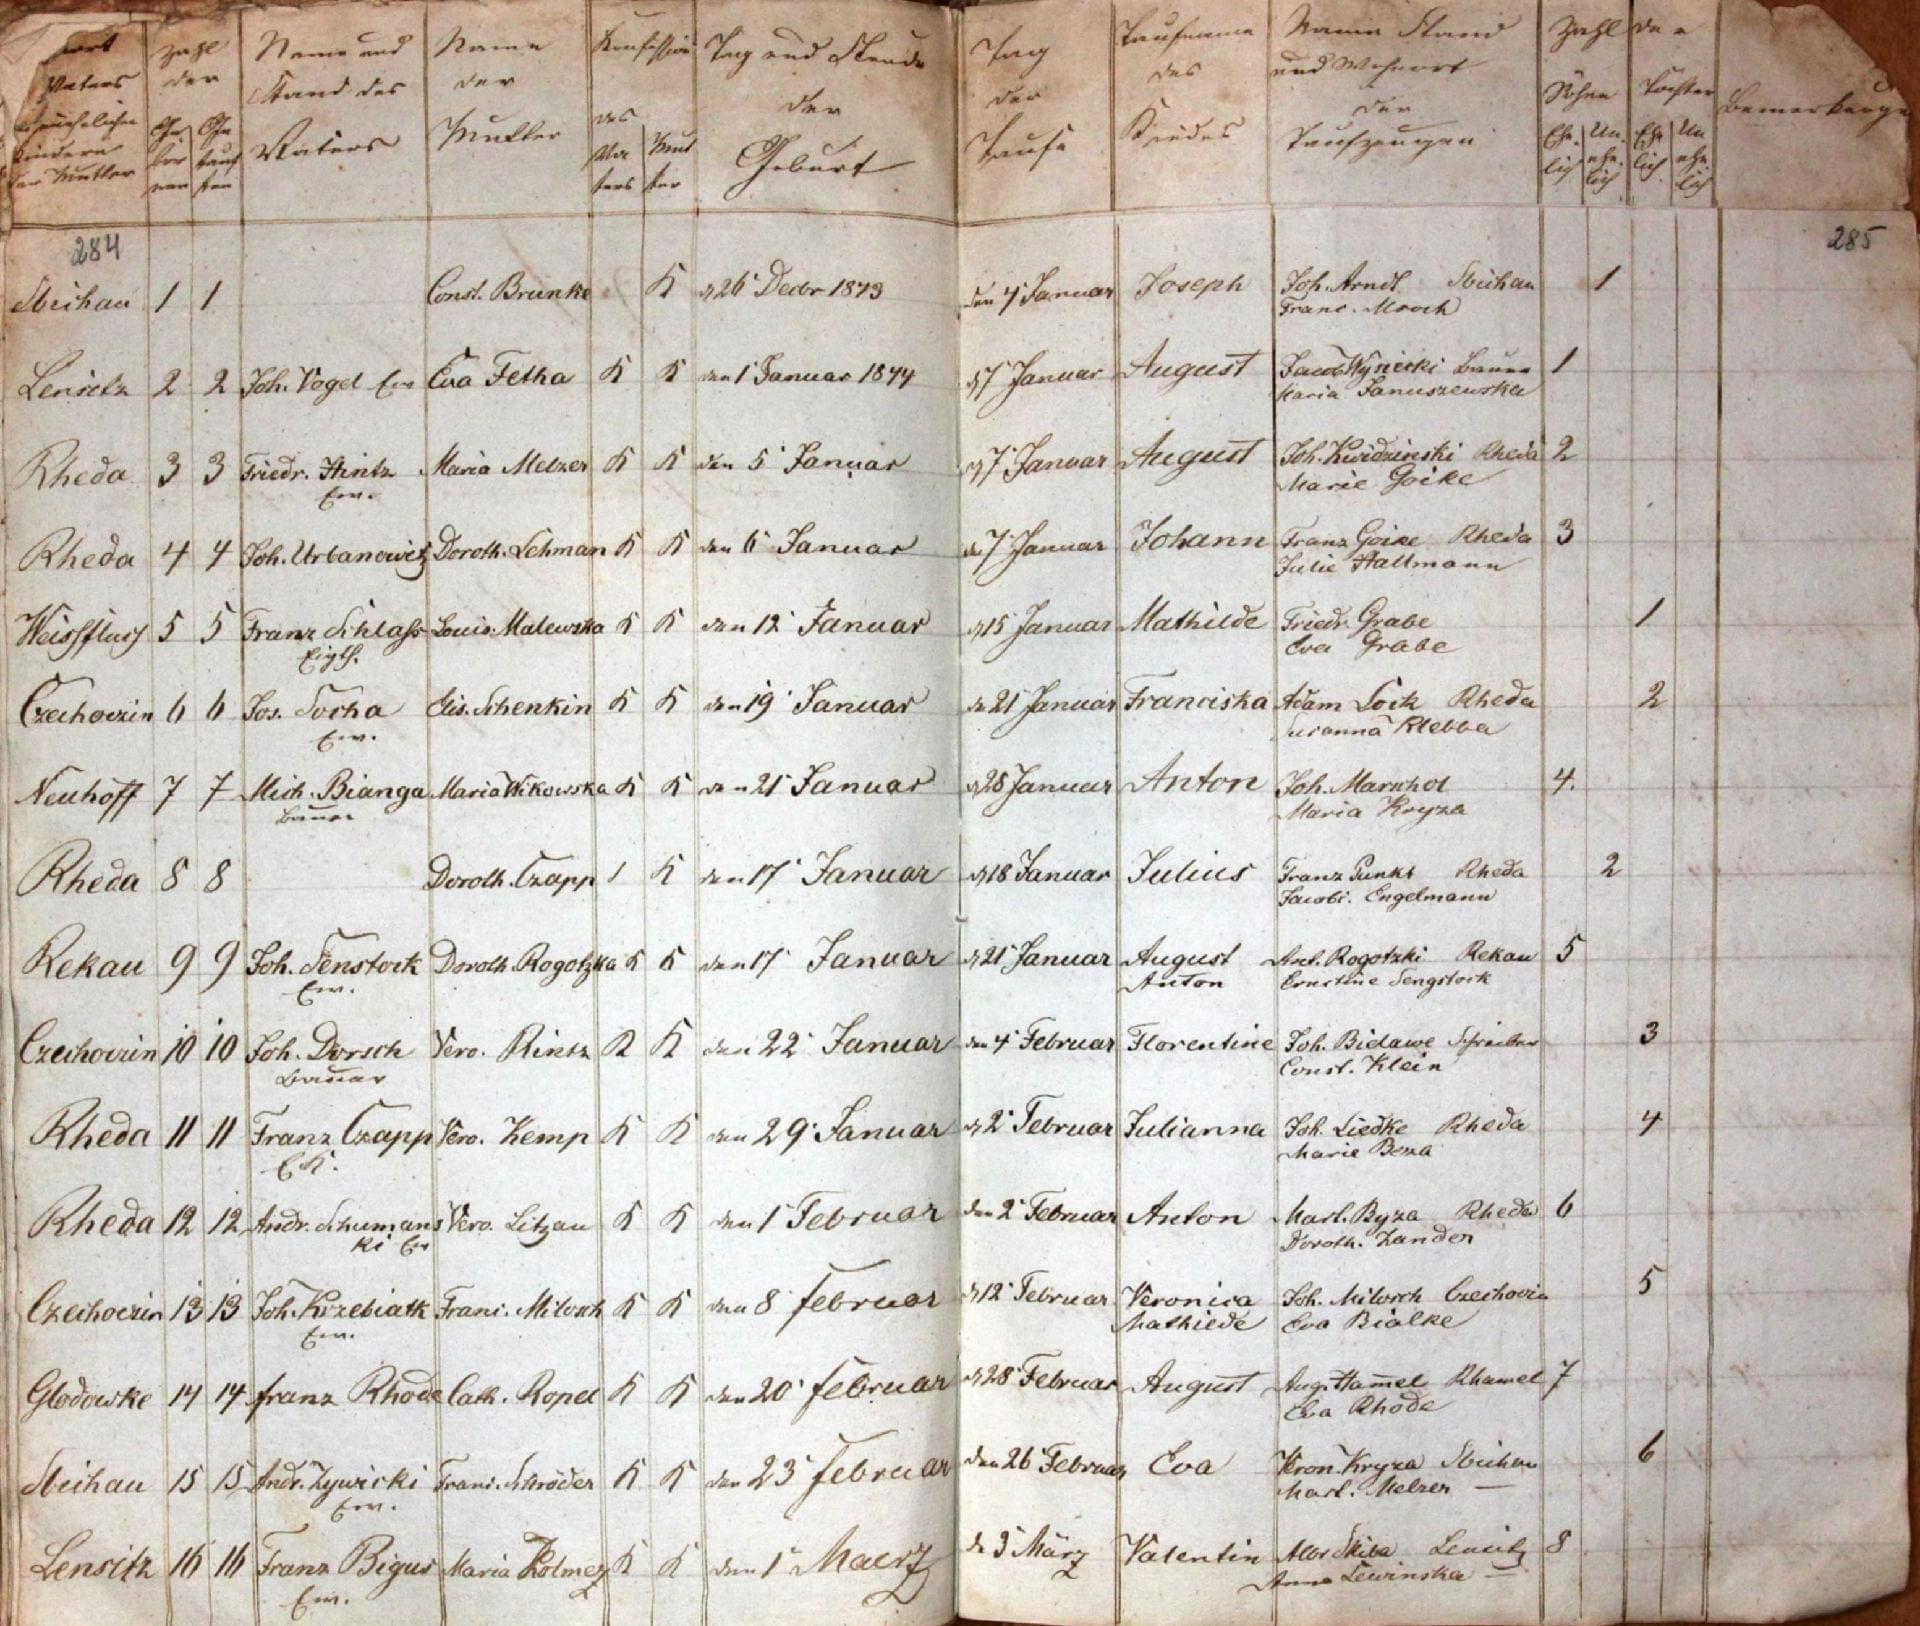 ort Vaters unehelichen Kindern der Mutter
Zahl der Gebornen Getauften
Name und Stand des Vaters
Name der Mutter
Konfession des Vaters Mutter
Tag und Stunde der Geburt
Tag der Taufe
Taufname des Kindes
Name Stand und Wohnort der Taufzeugen
Zahl der Söhne Ehelich Unehelich Töchter Ehelich Unehelich
Bemerkunge
284 285
Stichau 1 1 Const. Brunke K d 26 Decbr 1843 den 7 Januar Joseph Joh. Arndt 1
Franc.
Lensitz 2 2 Joh. Vogel Ew Eva Fetka K K den 1 Januar 1844 d 7 Januar August Jacob Wynecki Bauer 1
Maria Januszewska
Rheda 3 3 Friedr. Hintz Maria Melzer K K den 5 Januar d 7 Januar August Joh. Kwidzinski Rheda 2
Ew. Marie Goike
Rheda 4 4 Joh. Urbanowitz Doroth. Lehman K K den 6 Januar d 7 Januar Johann Franz Goike Rheda 3
Julie Hallmann
Weissfluss 5 5 Franz Schlass Louis. Malewska K K den 12 Januar d 15 Januar Mathilde Friedr. Grabe 1
Eigth. Eva Grabe
Czechoczin 6 6 Jos. Socha Elis. Schenkin K K den 19 Januar de 21 Januar Franciska Adam Rheda 2
Ew. Susanna Klebba
Neuhoff 7 7 Mich. Bianga Maria Wikowska K K den 21 Januar d 28 Januar Anton Joh. Marschol 4.
Bauer Maria Kryza
Rheda 8 8 Doroth. Czapp / K den 17 Januar d 18 Januar Julius Franz Punkt Rheda 2
Jacobi. Engelmann
Rekau 9 9 Joh. Senstock Doroth. Rogotzka K K den 17 Januar d 21 Januar August Ant. Rogotzki Rekau 5
Ew. Anton Ernstine Sengstock
Czechoczin 10 10 Joh. Dorsch Vero. Rintz K K den 22 Januar den 4 Februar Florentine Joh. Bidawe 3
Bauer Const. Klein
Rheda 11 11 Franz Czapp Vero. Kemp K K den 29 Januar d 2 Februar Julianna Joh. Liedke Rheda 4
E.K. Marie Beza
Rheda 12 12 Andr. Schumans Vero. Litzau K K den 1 Februar den 2 Februar Anton Mart. Byza Rheda 6
ki Ew Doroth. Zander
Czechoczin 13 13 Joh. Krzebiatk Franc. Milosch K K den 8 februar d 12 Februar Veronica Joh. Milosch Czechoczin 5
Ew. Mathiede Eva Bialke
Glodowke 14 14 franz Rhode Cath. Ropel K K den 20 februar d 28 Februar August Aug. Hamel Rhamel 7
Eva Rhode
Stichau 15 15 Andr. Zywicki Franc. Schröder K K den 23 februar den 26 Februar Eva Veron. Kryza Stichau 6
Ew. Mart. Melzer —
Lensitz 16 16 Franz Bigus Maria Kolmez K K den 1 Maerz de 3 März Valentin Albr Skiba Lensitz 8
Ew. Anna Lewinska —